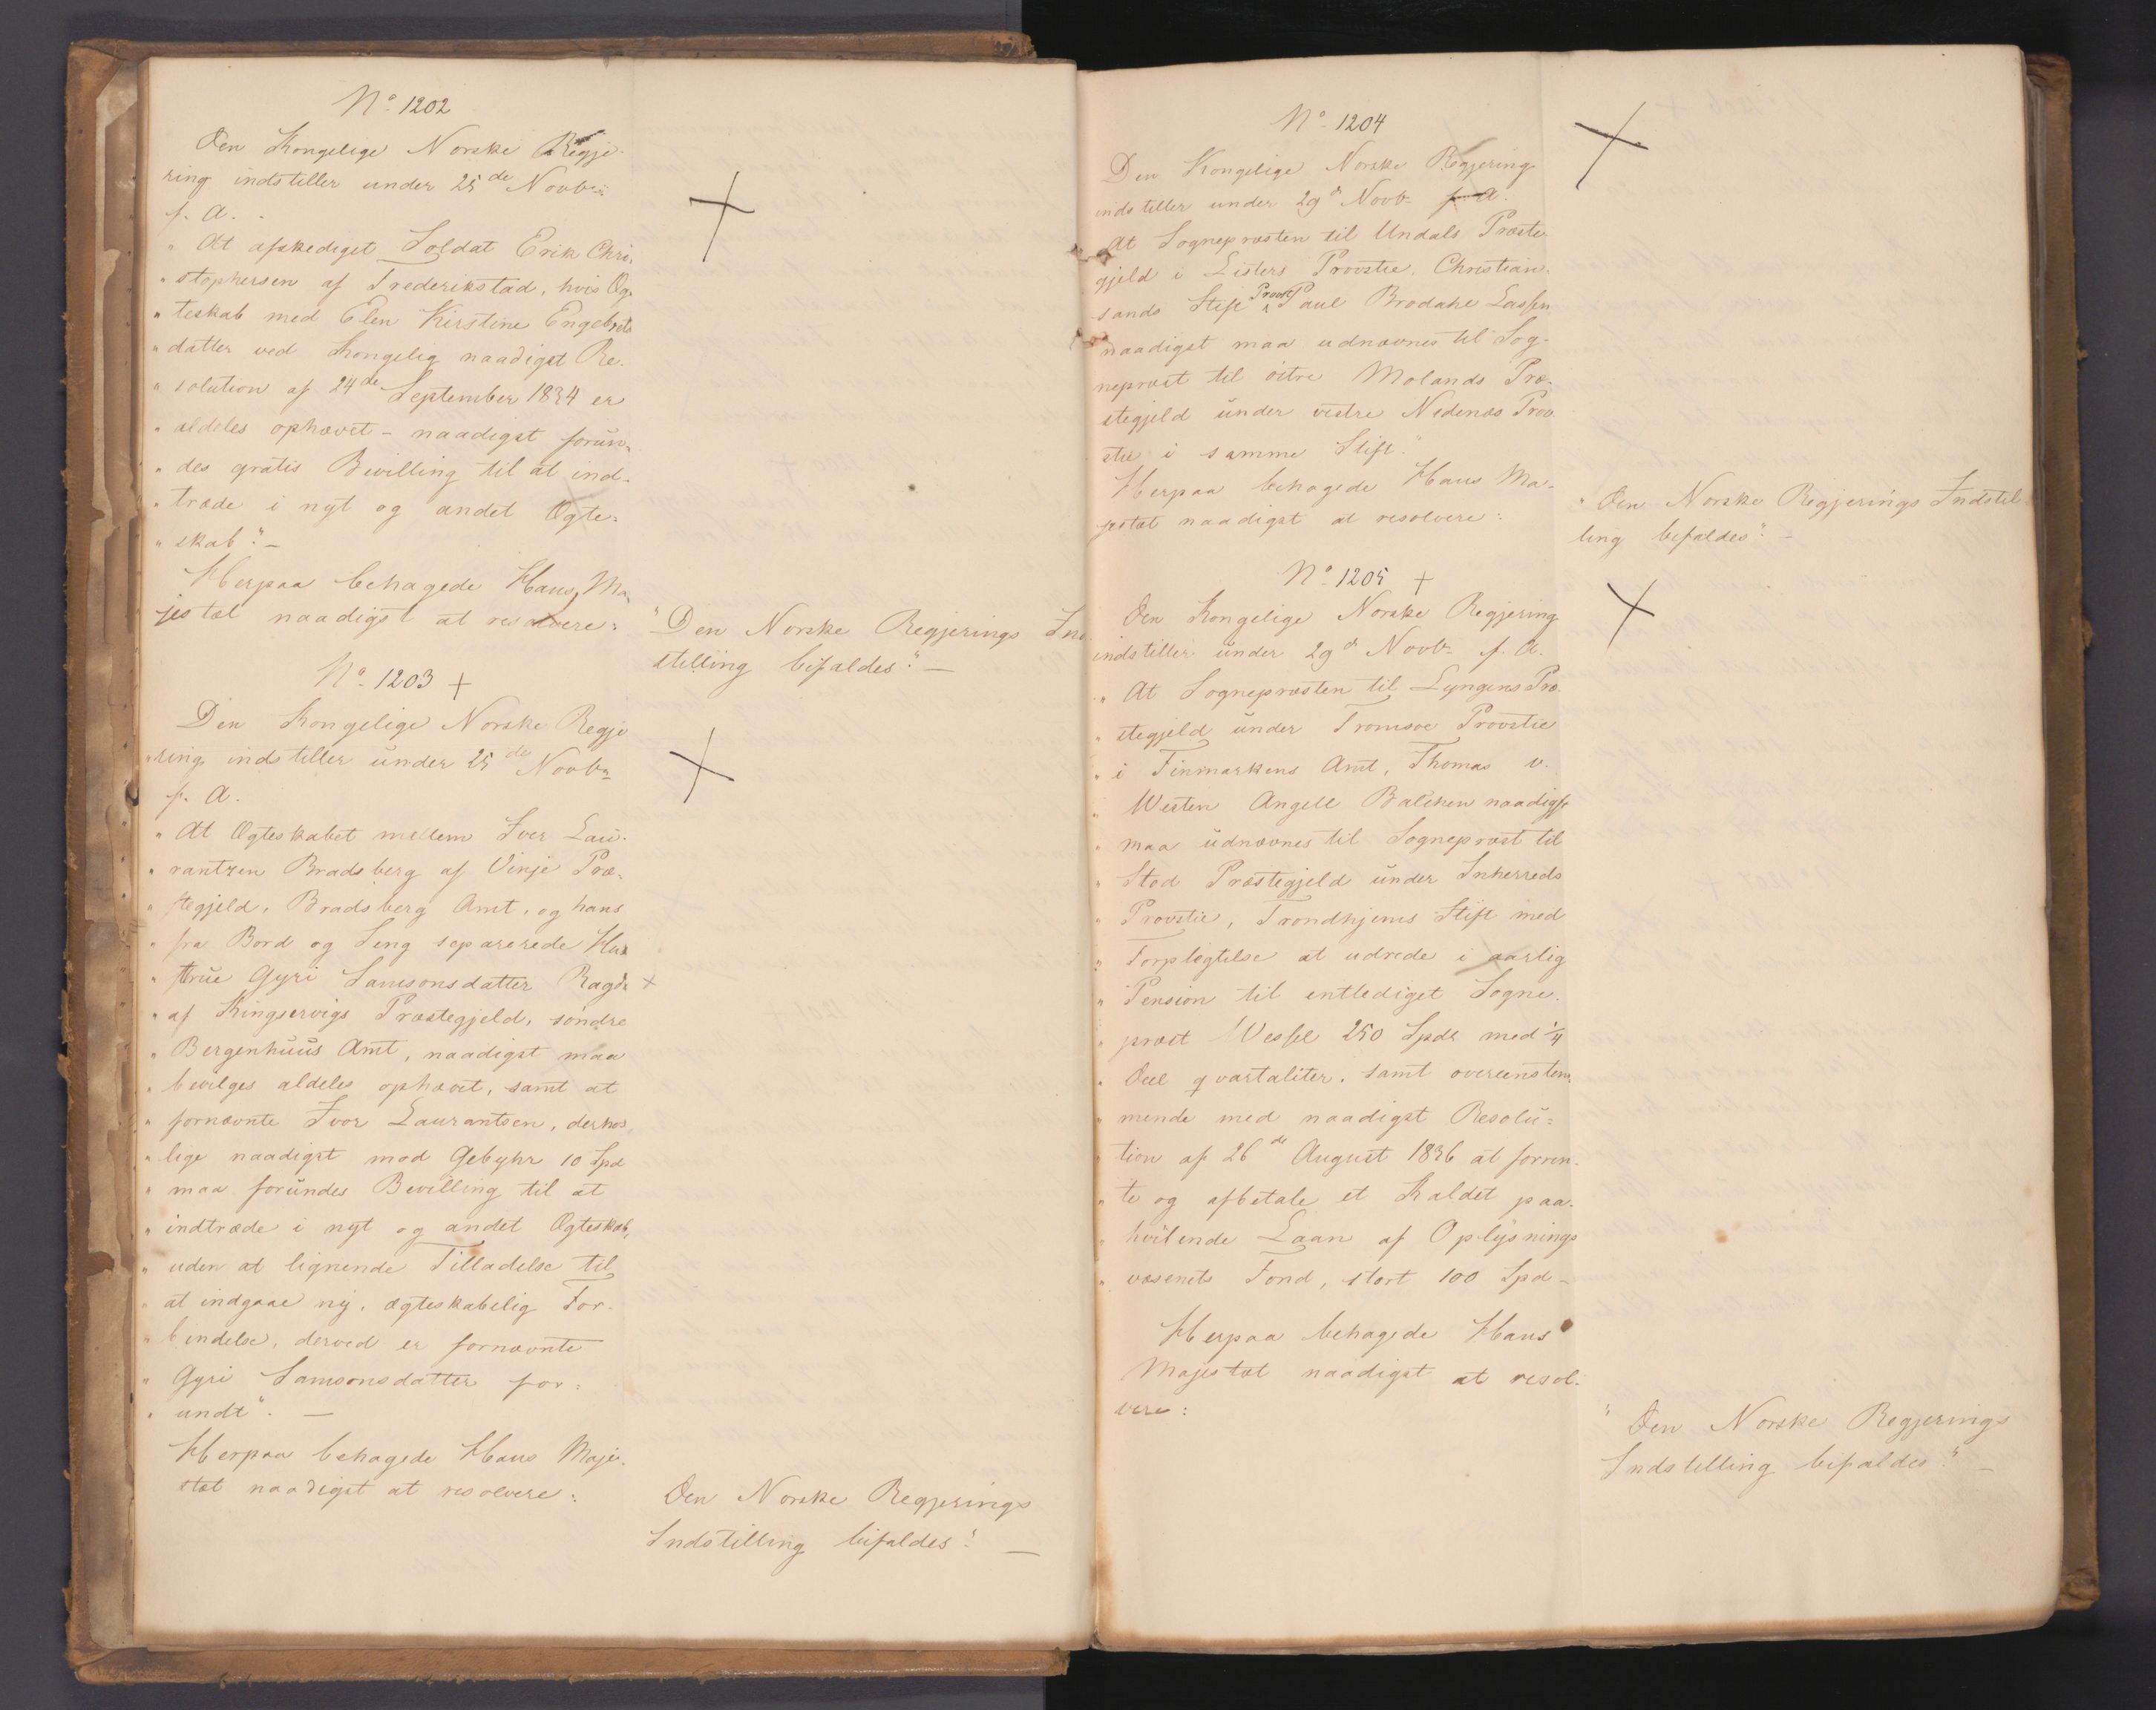 No. 1202
Den Kongelige Norske Regje-
ring indstiller under 25de Novbr.
f. A.
" At afskediget Soldat Erik Chri-
" stophersen af Frederikstad, hvis Æg-
" teskab med Elen Kirstine Engebrets
" datter ved Kongelig naadigst Re-
" solution af 24de September 1834 er
" aldeles ophævet - naadigst forun-
" des gratis Bevilling til at ind-
" træde i nyt og andet Ægte-
" skab". -
Herpaa behagede Hans Ma-
jestæt naadigst at resolvere:
"Den Norske Regjerings Ind
stilling bifaldes". -
No. 1203 +
Den Kongelige Norske Regje
ring indstiller under 25de Novbr.
f. A.
" At Ægteskabet mellem Iver Lau-
" rantzen Bradsberg af Vinje Præ-
" stegjeld, Bradsberg Amt, og hans
" fra Bord og Seng separerede Hu-
" strue Gyri Samsonsdatter Ragde +
" af Kingservigs Præstegjeld, søndre
" Bergenhuus Amt, naadigst maa
" bevilges aldeles ophævet, samt at
" fornævnte Iver Laurantsen, derhos
" lige naadigst mod Gebyhr 10 Spd
" maa forundes Bevilling til at
" indtræde i nyt og andet Ægteskab,
" uden at lignende Tilladelse til
" at indgaae ny, ægteskabelig For-
" bindelse, derved er fornævnte
" Gyri Samsonsdatter for-
" undt". -
Herpaa behagede Hans Maje-
stæt naadigst at resolvere:
Den Norske Regjerings
Indstilling bifaldes". -
No. 1204
Den Kongelige Norske Regjering
indstiller under 29d Novb. f. A.
At Sognepræsten til Undals Præste
gjeld i Listers Provstie, Christian-
sands Stift Provst Paul Brodahl Lassen
naadigst maa udnævnes til Sog-
nepræst til østre Molands Præ-
stegjeld under vestre Nedenæs Prov
stie i samme Stift".
Herpaa behagede Hans Ma-
jestæt naadigst at resolvere:
" Den Norske Regjerings Indstil
ling bifaldes". -
No. 1205 +
Den Kongelige Norske Regjering
indstiller under 29d Novb. f. A.
" At Sognepræsten til Lyngens Præ-
" stegjeld under Tromsøe Provstie
" i Finmarkens Amt, Thomas v.
" Westen Angell Balchen naadigst
" maa udnævnes til Sognepræst til
" Stod Præstegjeld under Inherreds
" Provstie, Trondhjems Stift med
" Forpligtelse at udrede i aarlig
" Pension til entlediget Sogne-
" præst Wessel 250 Spdr med 1/4
" Deel qvartaliter, samt overeenstem-
" mende med naadigst Resolu-
" tion af 26de August 1836 at forren-
" te og afbetale et Kaldet paa-
" hvilende Laan af Oplysnings
" væsenets Fond, stort 100 Spd -
Herpaa behagede Hans
Majestæt naadigst at resol-
vere:
" Den Norske Regjerings
Indstilling bifaldes". -